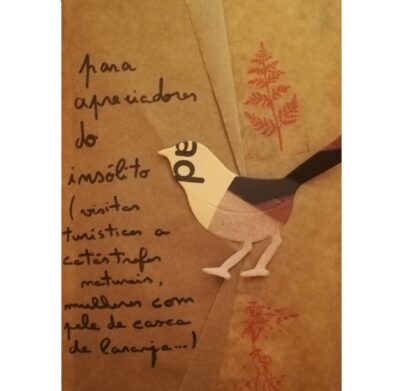 para
apreciadores
do
insólito
(visitas
turísticas a
catástrofes
naturais,
mulheres com
pele de casca
de laranja...)
pa